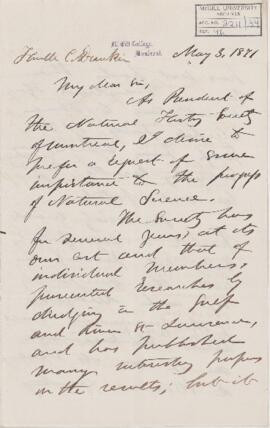 McGILL UNIVERSITY
ARCHIVES
ACC. NO. 2211
REF. 46
McGill College,
Montreal.
May 3, 1871
My dear Sir,
As President of
the Natural History Society
of Montreal, I desire to
prefer a request of some
importance to the progress
of Natural Science.
The Society has
for several years, at its
own cost and that of
individual members,
prosecuted researches by
dredging in the Gulf
and River St Lawrence,
and has published
many interesting papers
on the results; but it